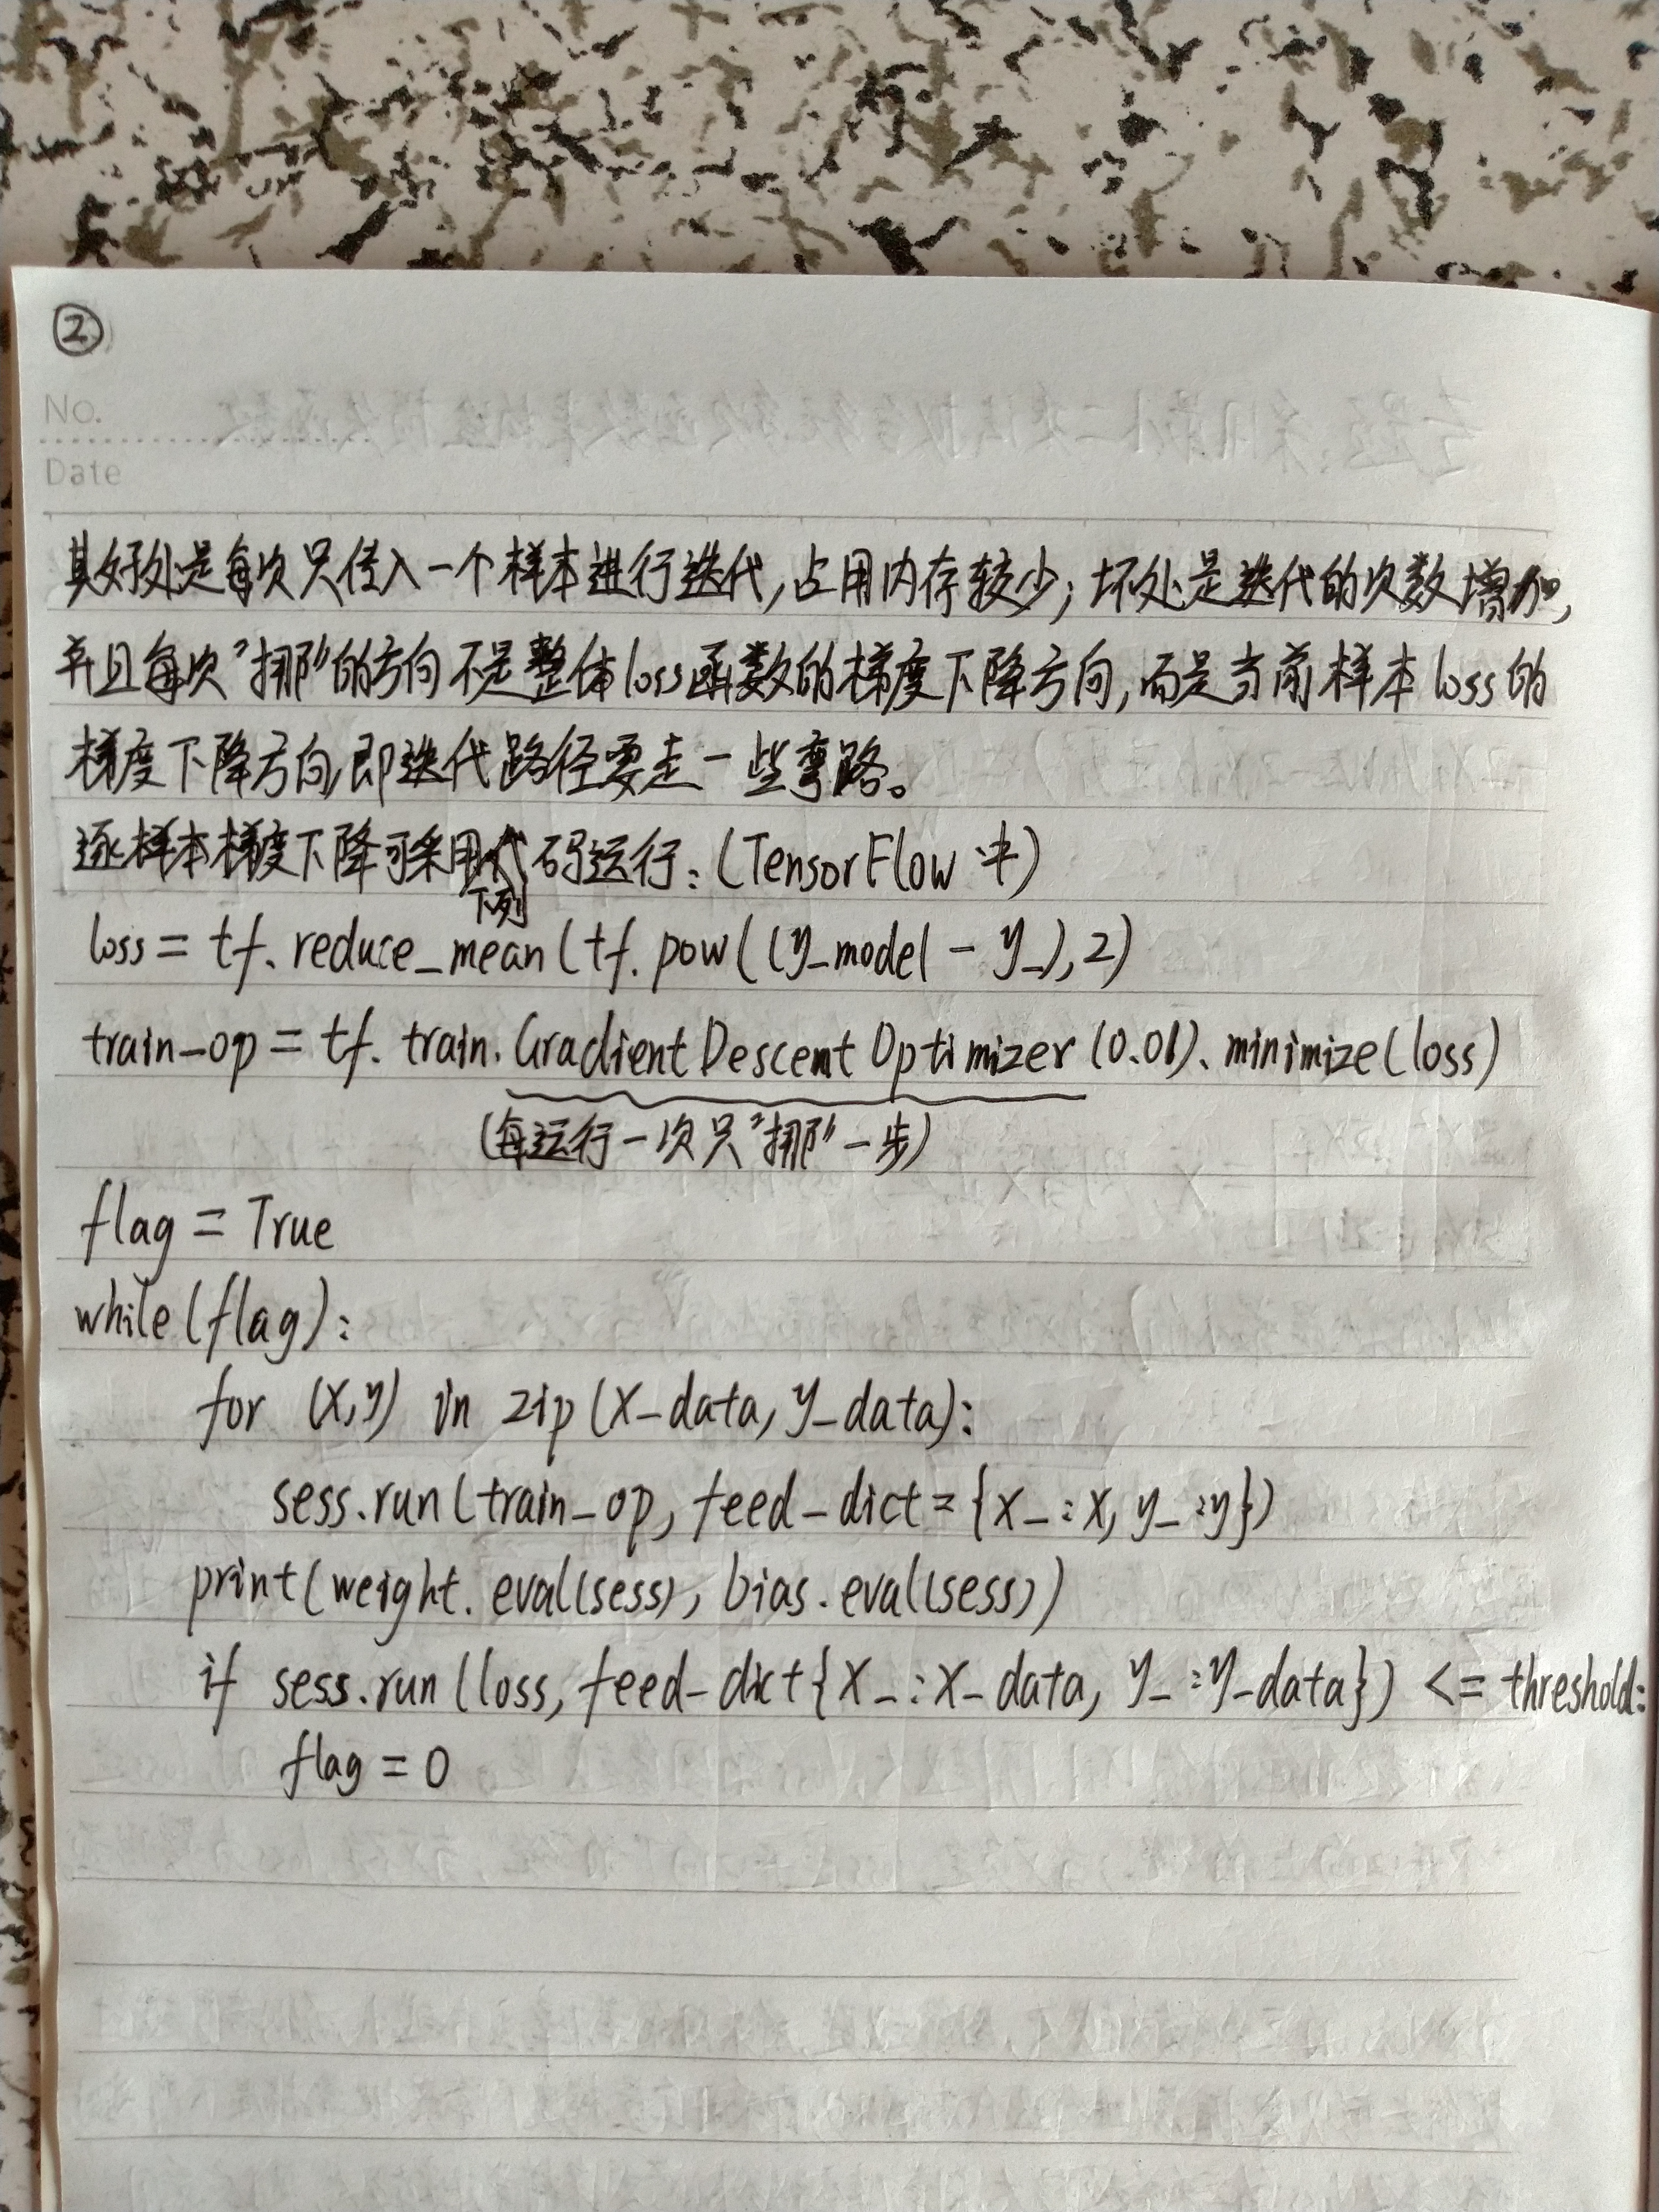 ②
No.
Date
其好处是每次只传入一个样本进行迭代,占用内存较少;坏处是迭代的次数增加,
并且每次"挪"的方向不是整体loss函数的梯度下降方向,而是当前样本loss的
梯度下降方向,即迭代路径要走一些弯路。
逐样本梯度下降可采用下列代码运行:(TensorFlow中)
loss = tf.reduce_mean(tf.pow((y_model - y_),2)
train_op = tf.train.GradientDescentOptimizer(0.01).minimize(loss)
(每运行一次只"挪"一步)
flag = True
while(flag):
for (x,y) in zip(x_data, y_data):
sess.run(train_op, feed_dict={x_:x, y_:y})
print(weight.eval(sess), bias.eval(sess))
if sess.run(loss, feed_dict{x_:x_data, y_:y_data}) <= threshold:
flag = 0